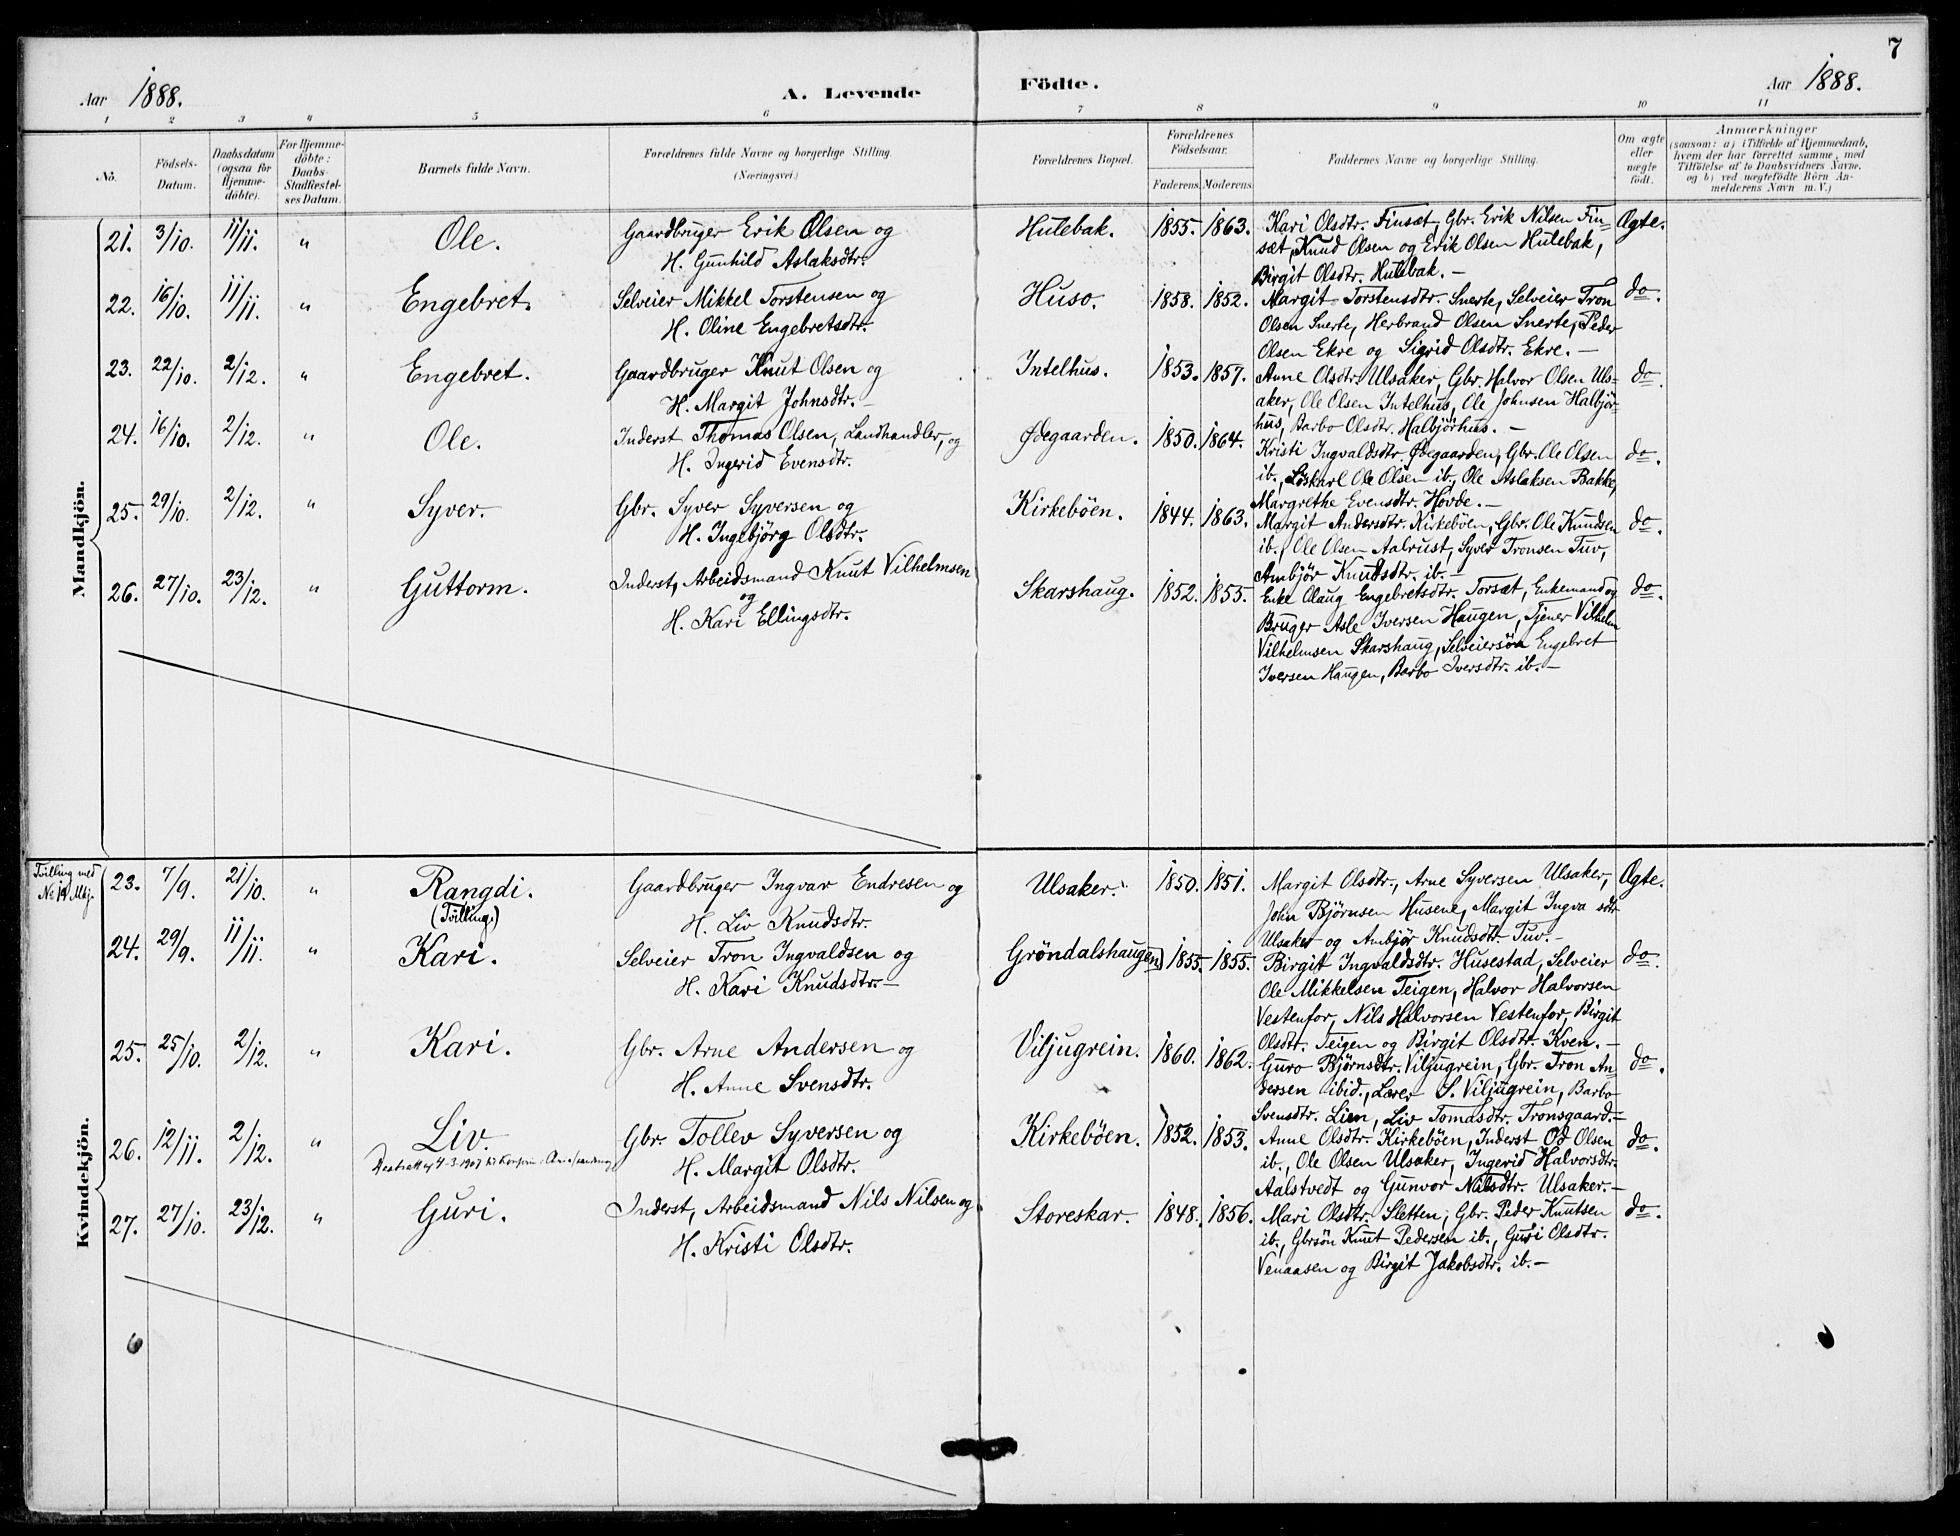 7
Aar 1888.
A. Levende Födte.
Aar 1888.
1 2 3 4 5 6 7 8 9 10 11
No.
Födsels-Datum.
Daabsdatum (ogsaa for Hjemmedöbte).
For Hjemmedöbte: Daabs-Stadfæstelses Datum.
Barnets fulde Navn.
Forældrenes fulde Navne og borgerlige Stilling.
(Næringsvei.)
Forældrenes Bopæl.
Forældrenes Födselsaar.
Faderens. Moderens.
Faddernes Navne og borgerlige Stilling.
Om ægte eller uægte födt.
Anmærkninger
(saasom: a) i Tilfælde af Hjemmedaab,
hvem der har forrettet samme, med
Tilföielse af to Daabsvidners Navne.
og b) ved uægtefödte Börn An-
melderens Navn m.V.)
Mandkjön.
21. 3/10. 11/11. " Ole. Gaardbruger Erik Olsen og
H. Gunhild Aslaksdtr.
Hulebak. 1855. 1863. Kari Olsdtr. Finsæt, Gbr. Erik Nilsen Fin-
sæt, Knud Olsen og Erik Olsen Hulebak,
Birgit Olsdtr. Hulebak. —
Ægte.
22. 16/10. 11/11. " Engebret. Selveier Mikkel Torstensen og
H. Oline Engebretsdtr.
Huso. 1858. 1852. Margit Torstensdtr. Snerte, Selveier Tron
Olsen Snerte, Herbrand Olsen Snerte, Peder
Olsen Ekre og Sigrid Olsdtr. Ekre. —
do.
23. 22/10. 2/12. " Engebret. Gaardbruger Knut Olsen og
H. Margit Johnsdtr. —
Intelhus. 1853. 1857. Anne Olsdtr. Ulsaker, Gbr. Halvor Olsen Uls-
aker, Ole Olsen Intelhus, Ole Johnsen Halbjör-
hus, Barbo Olsdtr. Halbjörhus. —
do.
24. 16/10. 2/12. " Ole. Inderst Thomas Olsen, Landhandler, og
H. Ingerid Evensdtr.
Ødegaarden. 1850. 1864. Kristi Ingvaldsdtr. Ødegaarden, Gbr. Ole Olsen
ib., Löskarl Ole Olsen ib., Ole Aslaksen Bakke,
Margrethe Evensdtr. Hovde. —
do.
25. 29/10. 2/12. " Syver. Gbr. Syver Syversen og
H. Ingebjörg Olsdtr.
Kirkeböen. 1844. 1863. Margit Andersdtr. Kirkeböen, Gbr. Ole Knudsen
ib., Ole Olsen Aalrust, Syver Tronsen Tuv,
Ambjör Knudsdtr. ib. —
do.
26. 27/10. 23/12. " Guttorm. Inderst, Arbeidsmand Knut Vilhelmsen
og
H. Kari Ellingsdtr.
Skarshaug. 1852. 1855. Enke Olaug Engebretsdtr. Torsæt, Enkemand og
Bruger Asle Iversen Haugen, Tjener Vilhelm
Vilhelmsen Skarshaug, Selveiersön Engebret
Iversen Haugen, Barbo Iversdtr. ib. —
do.
Kvindekjön.
Tvilling med
No 19 Mkj.
23. 7/9. 21/10. " Rangdi.
(Tvilling)
Gaardbruger Ingvar Endresen og
H. Liv Knudsdtr.
Ulsaker. 1850. 1851. Margit Olsdtr., Arne Syversen Ulsaker,
John Bjørnsen Husene, Margit Ingva sdtr
Ulsaker og Ambjör Knudsdtr. Tuv. —
Ægte.
24. 29/9. 11/11. " Kari. Selveier Tron Ingvaldsen og
H. Kari Knudsdtr. —
Gröndalshaugen 1855. 1855. Birgit Ingvaldsdtr. Husestad, Selveier
Ole Mikkelsen Teigen, Halvor Halvorsen
Vestenfor, Nils Halvorsen Vestenfor, Birgit
Olsdtr. Teigen og Birgit Olsdtr. Kven. —
do.
25. 25/10. 2/12. " Kari. Gbr. Arne Andersen og
H. Anne Svensdtr.
Viljugrein. 1860. 1862. Guro Bjørnsdtr. Viljugrein, Gbr. Tron An-
dersen ibid., Lærer S. Viljugrein, Barbo
Svensdtr. Lien, Liv Tomasdtr. Tronsgaard. —
do.
26. 12/11. 2/12. " Liv. Gbr. Tollev Syversen og
H. Margit Olsdtr.
Kirkebøen. 1852. 1853. Anne Olsdtr. Kirkebøen, Inderst Od Olsen
ib., Ole Olsen Ulsaker, Ingerid Halvorsdtr.
Aalstvedt og Gunvor Nilsdtr. Ulsaker. —
do.
27. 27/10. 23/12. " Guri. Inderst, Arbeidsmand Nils Nilsen og
H. Kristi Olsdtr.
Storeskar. 1848. 1856. Mari Olsdtr. Sletten, Gbr. Peder Knutsen
ib., Gbrsön Knut Pedersen ib., Guri Olsdtr.
Venaasen og Birgit Jakobsdtr. ib. —
do.